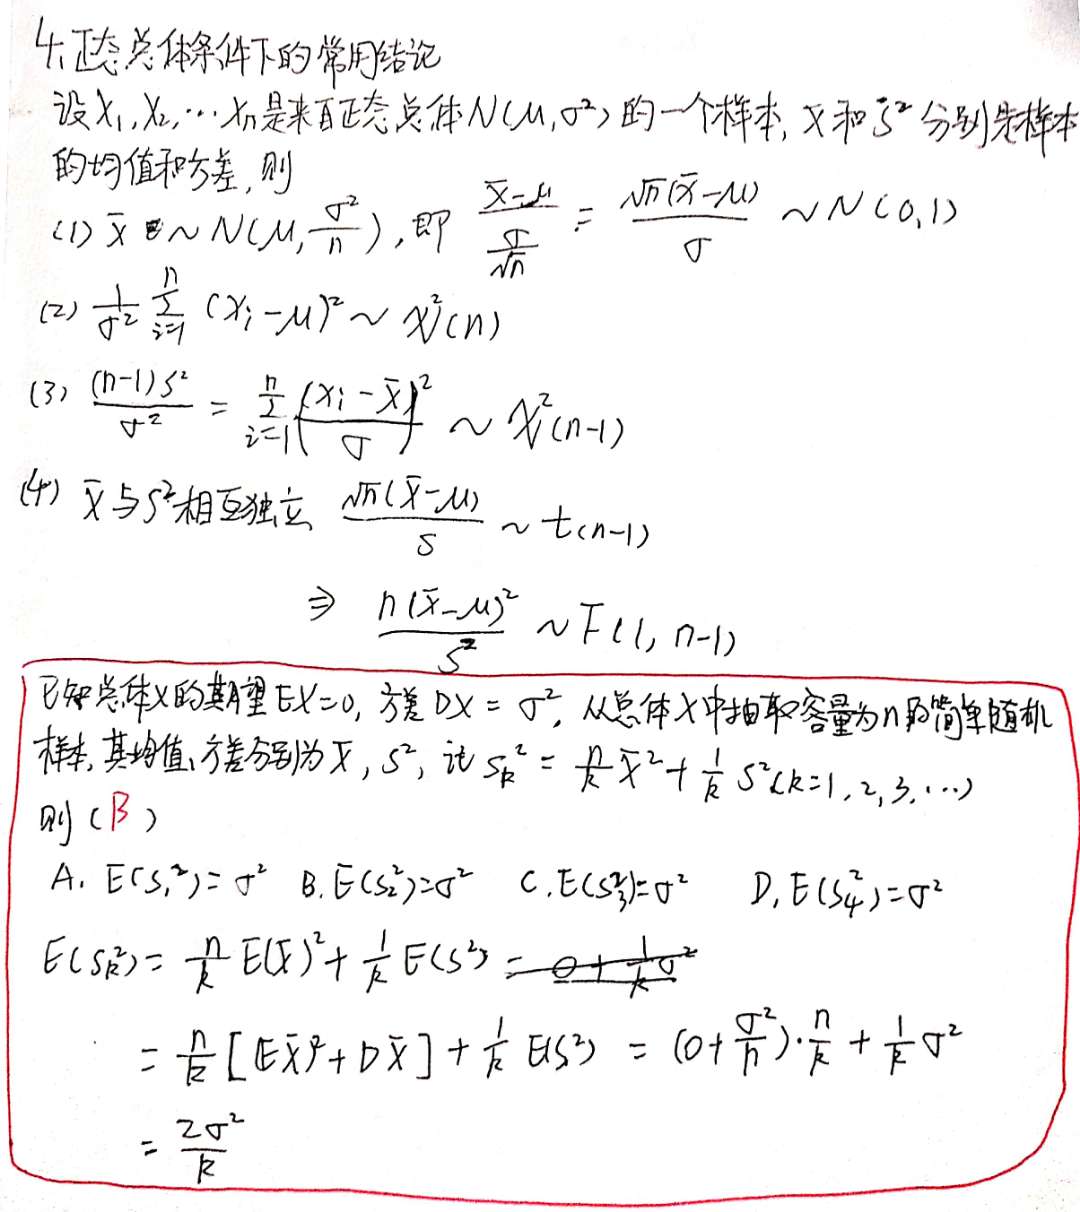 4.正态总体条件下的常用结论
设X₁,X₂,…Xn是来自正态总体N(μ,σ²)的一个样本, X̄和S²分别是样本
的均值和方差,则
(1) X̄ ~ N(μ, σ²/n), 即 (X̄-μ)/(σ/√n) = √n(X̄-μ)/σ ~ N(0,1)
(2) 1/σ² Σ_{i=1}^{n} (Xi-μ)² ~ χ²(n)
(3) (n-1)S²/σ² = Σ_{i=1}^{n} ((Xi-X̄)/σ)² ~ χ²(n-1)
(4) X̄与S²相互独立, √n(X̄-μ)/S ~ t(n-1)
⇒ n(X̄-μ)²/S² ~ F(1, n-1)
已知总体X的期望EX=0, 方差DX=σ², 从总体X中抽取容量为n的简单随机
样本, 其均值、方差分别为X̄, S², 记S_k² = n/k X̄² + 1/k S² (k=1,2,3,…)
则(B)
A. E(S₁²)=σ² B. E(S₂²)=σ² C. E(S₃²)=σ² D. E(S₄²)=σ²
E(S_k²) = n/k E(X̄)² + 1/k E(S²) = 0 + 1/k σ²
= n/k [(EX̄)² + DX̄] + 1/k E(S²) = (0+σ²/n)·n/k + 1/k σ²
= 2σ²/k